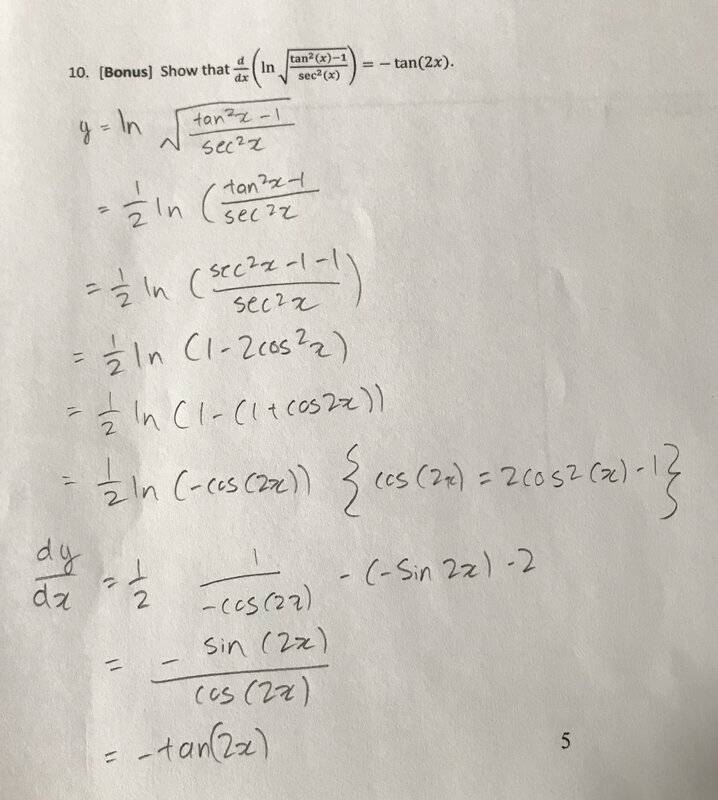 10. [Bonus] Show that d/dx (ln √(tan²(x)−1 / sec²(x))) = − tan(2x).
y = ln √(tan²x - 1 / sec²x)
= 1/2 ln (tan²x-1 / sec²x
= 1/2 ln (sec²x - 1 - 1 / sec²x)
= 1/2 ln (1 - 2cos²x)
= 1/2 ln (1 - (1 + cos2x))
= 1/2 ln (-cos(2x)) { cos(2x) = 2cos2(x) - 1 }
dy/dx = 1/2 1/-cos(2x) - (-sin 2x) - 2
= - sin(2x) / cos(2x)
= -tan(2x)
5